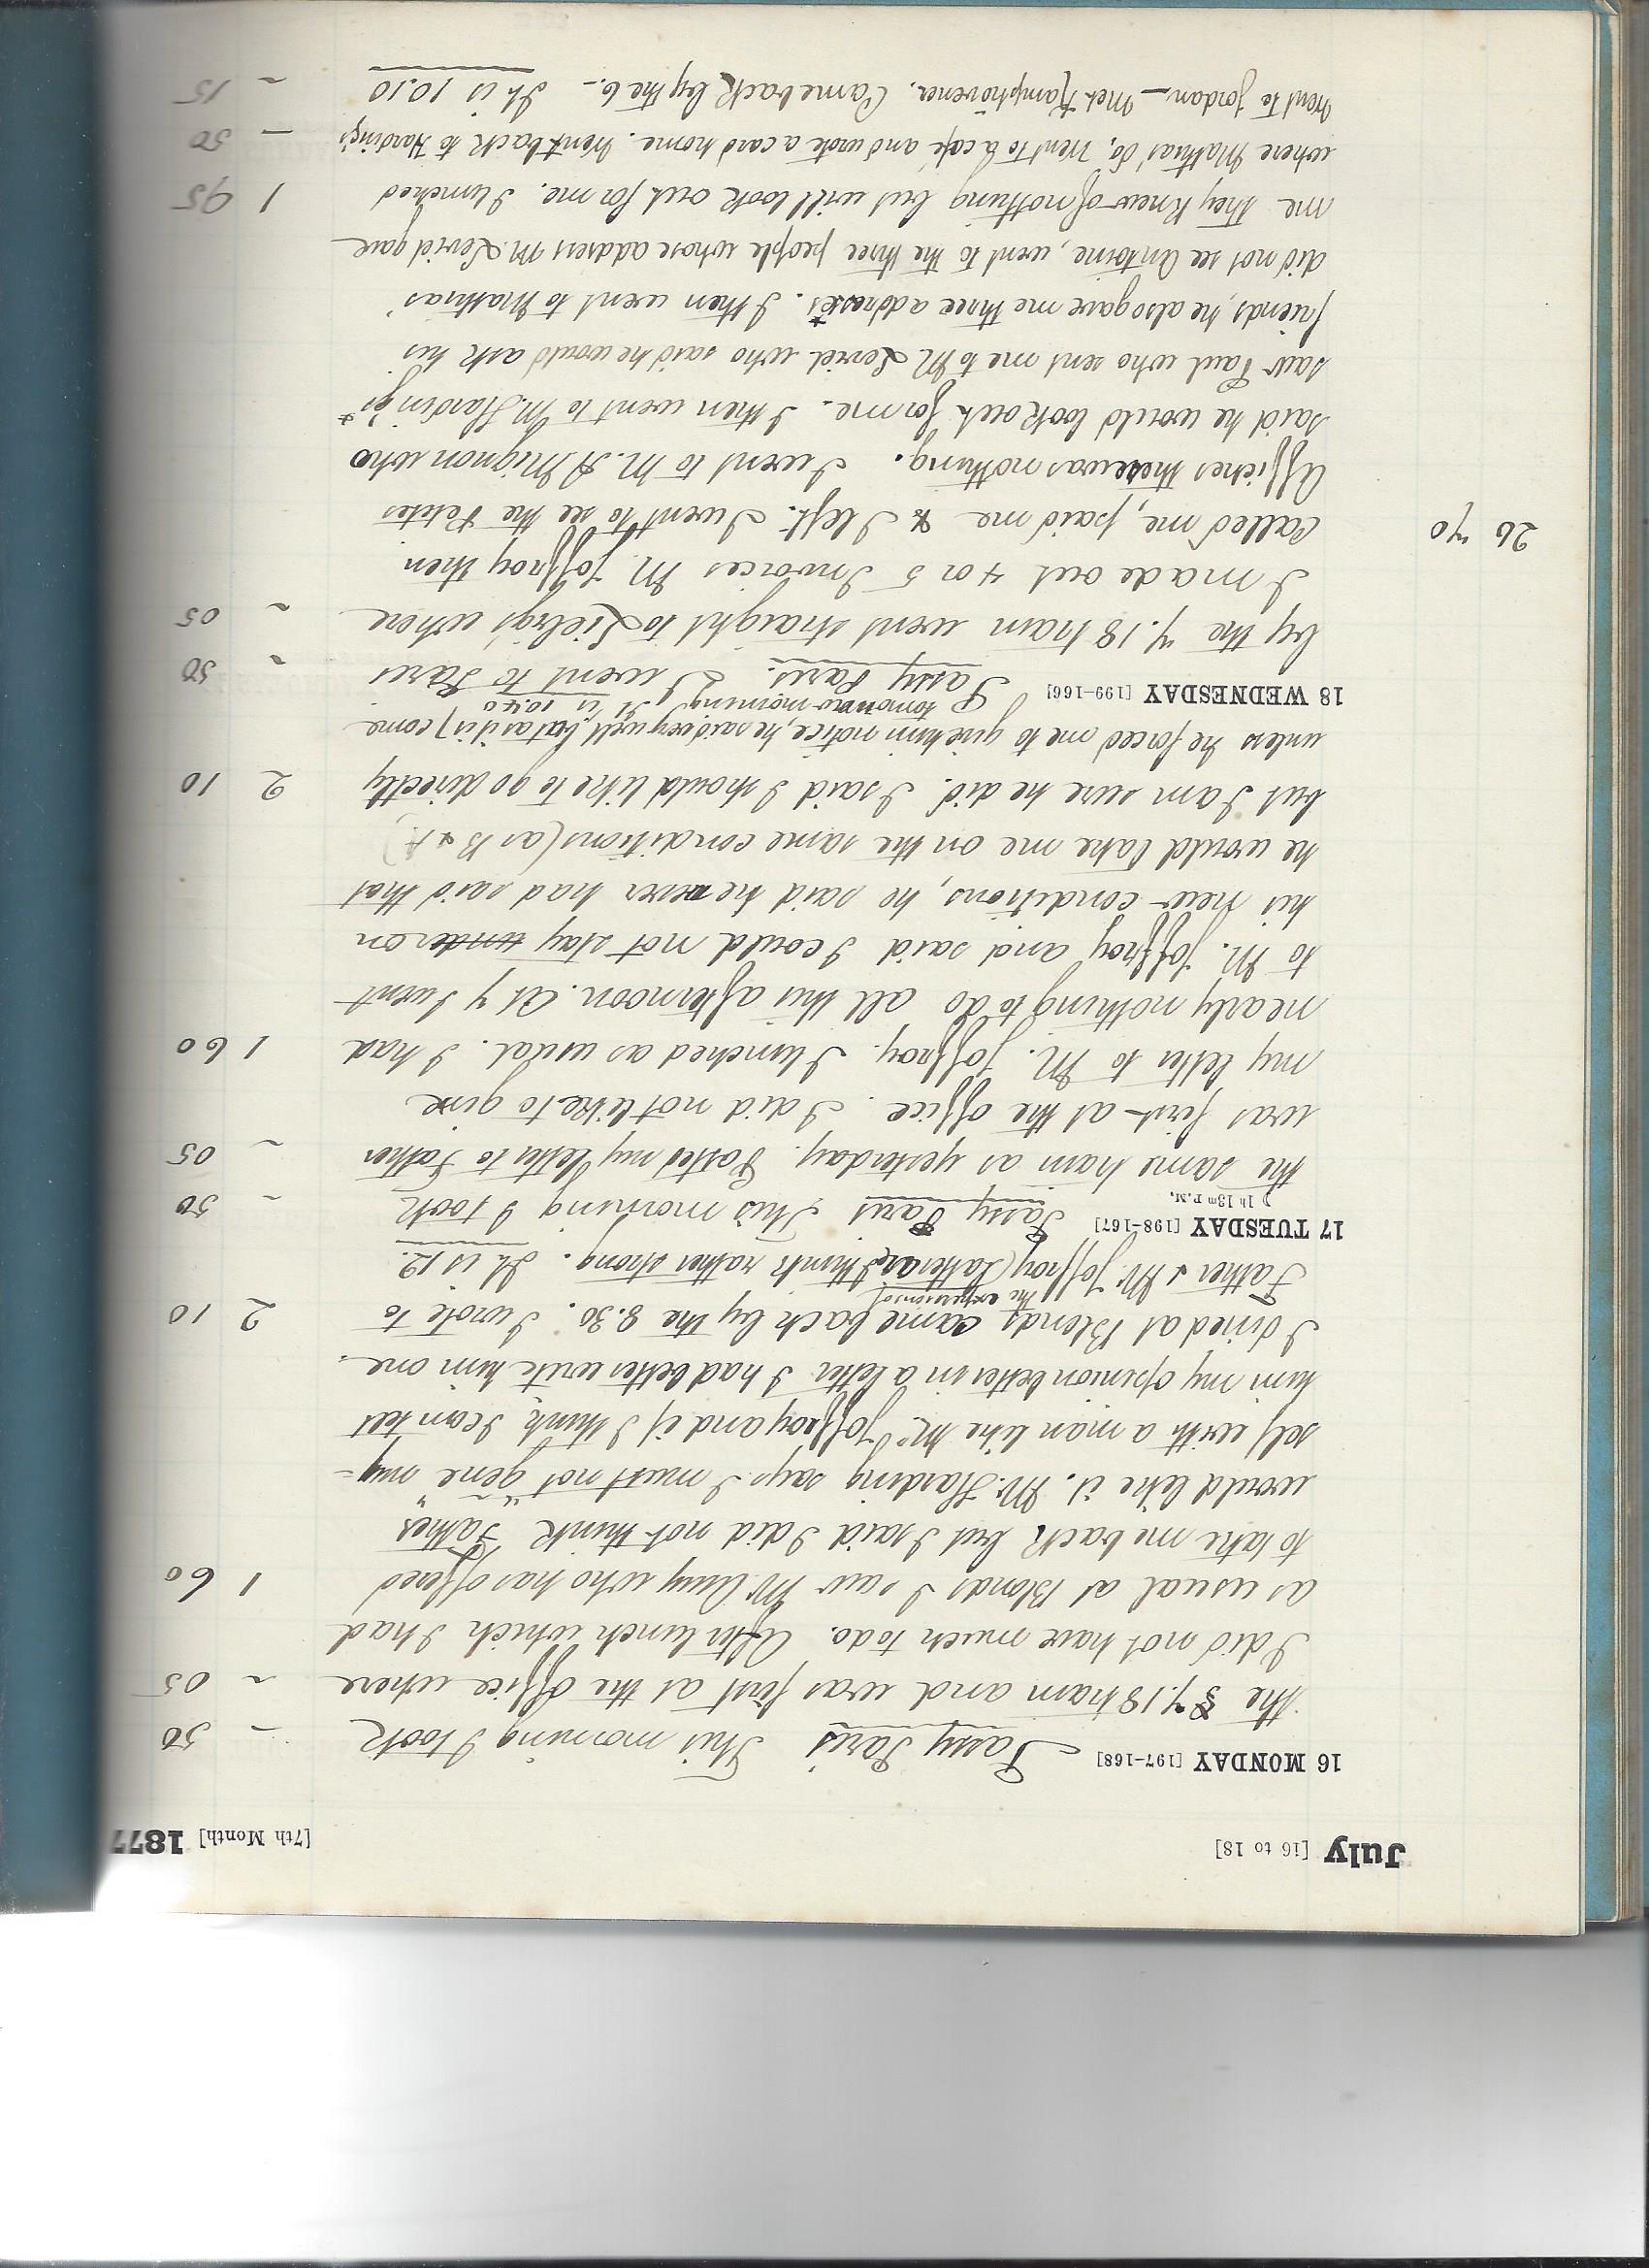 July [16 to 18] [7th Month] 1877
16 MONDAY [197-168] Passy Paris This morning I took – 50
the 7.18 train and was first at the office where ~ 05
I did not have much to do. After lunch which I had
as usual at Blonds I saw Mr. Amy who has offered 1 60
to take me back but I said I did not think Father
would like it. Mr. Harding says I must not "gêne" my-
self with a man like Mr Joffroy and if I think I can tell
him my opinion better in a letter I had better write him one.
I dined at Blonds came back by the 8.30. I wrote to 2 10
the expression of
Father & Mr Joffroy (Latter are, I think rather strong. It is 12.
17 TUESDAY [198-167] Passy Paris This morning I took ~ 50
☽ 1h 13m P.M.
the same train as yesterday. Posted my letter to Father ~ 05
was first at the office. I did not like to give
my letter to M. Joffroy. I lunched as usual. I had 1 60
nearly nothing to do all this afternoon. At 7 I went
to M. Joffroy and said I could not stay under on
his new conditions, he said he never had said that
he would take me on the same conditions (as B & A)
but I am sure he did. I said I should like to go directly 2 10
unless he forced me to give him notice, he said very well, but as it is) come
tomorrow morning It is 10.40
18 WEDNESDAY [199-166] Passy Paris. I went to Paris ~ 50
by the 7.18 train went straight to Liebig's where ~ 05
I made out 4 or 5 Invoices M. Joffroy then
26 70 called me, paid me & I left. I went to see the Petites
Affiches there was nothing. I went to M. A Mignon who
said he would look out for me. I then went to M. Harding's
saw Paul who sent me to M Levid who said he would ask his
friends, he also gave me three addresses. I then went to Mathias'
did not see Antoine, went to the three people whose address M. Levid gave
me they knew of nothing but will look out for me. I lunched 1 95
where Mathias' do, went to a café and wrote a card home. Went back to Harding's – 50
Went to Jordan – Met Kamphövener. Came back by the 6. – It is 10.10 ~ 15